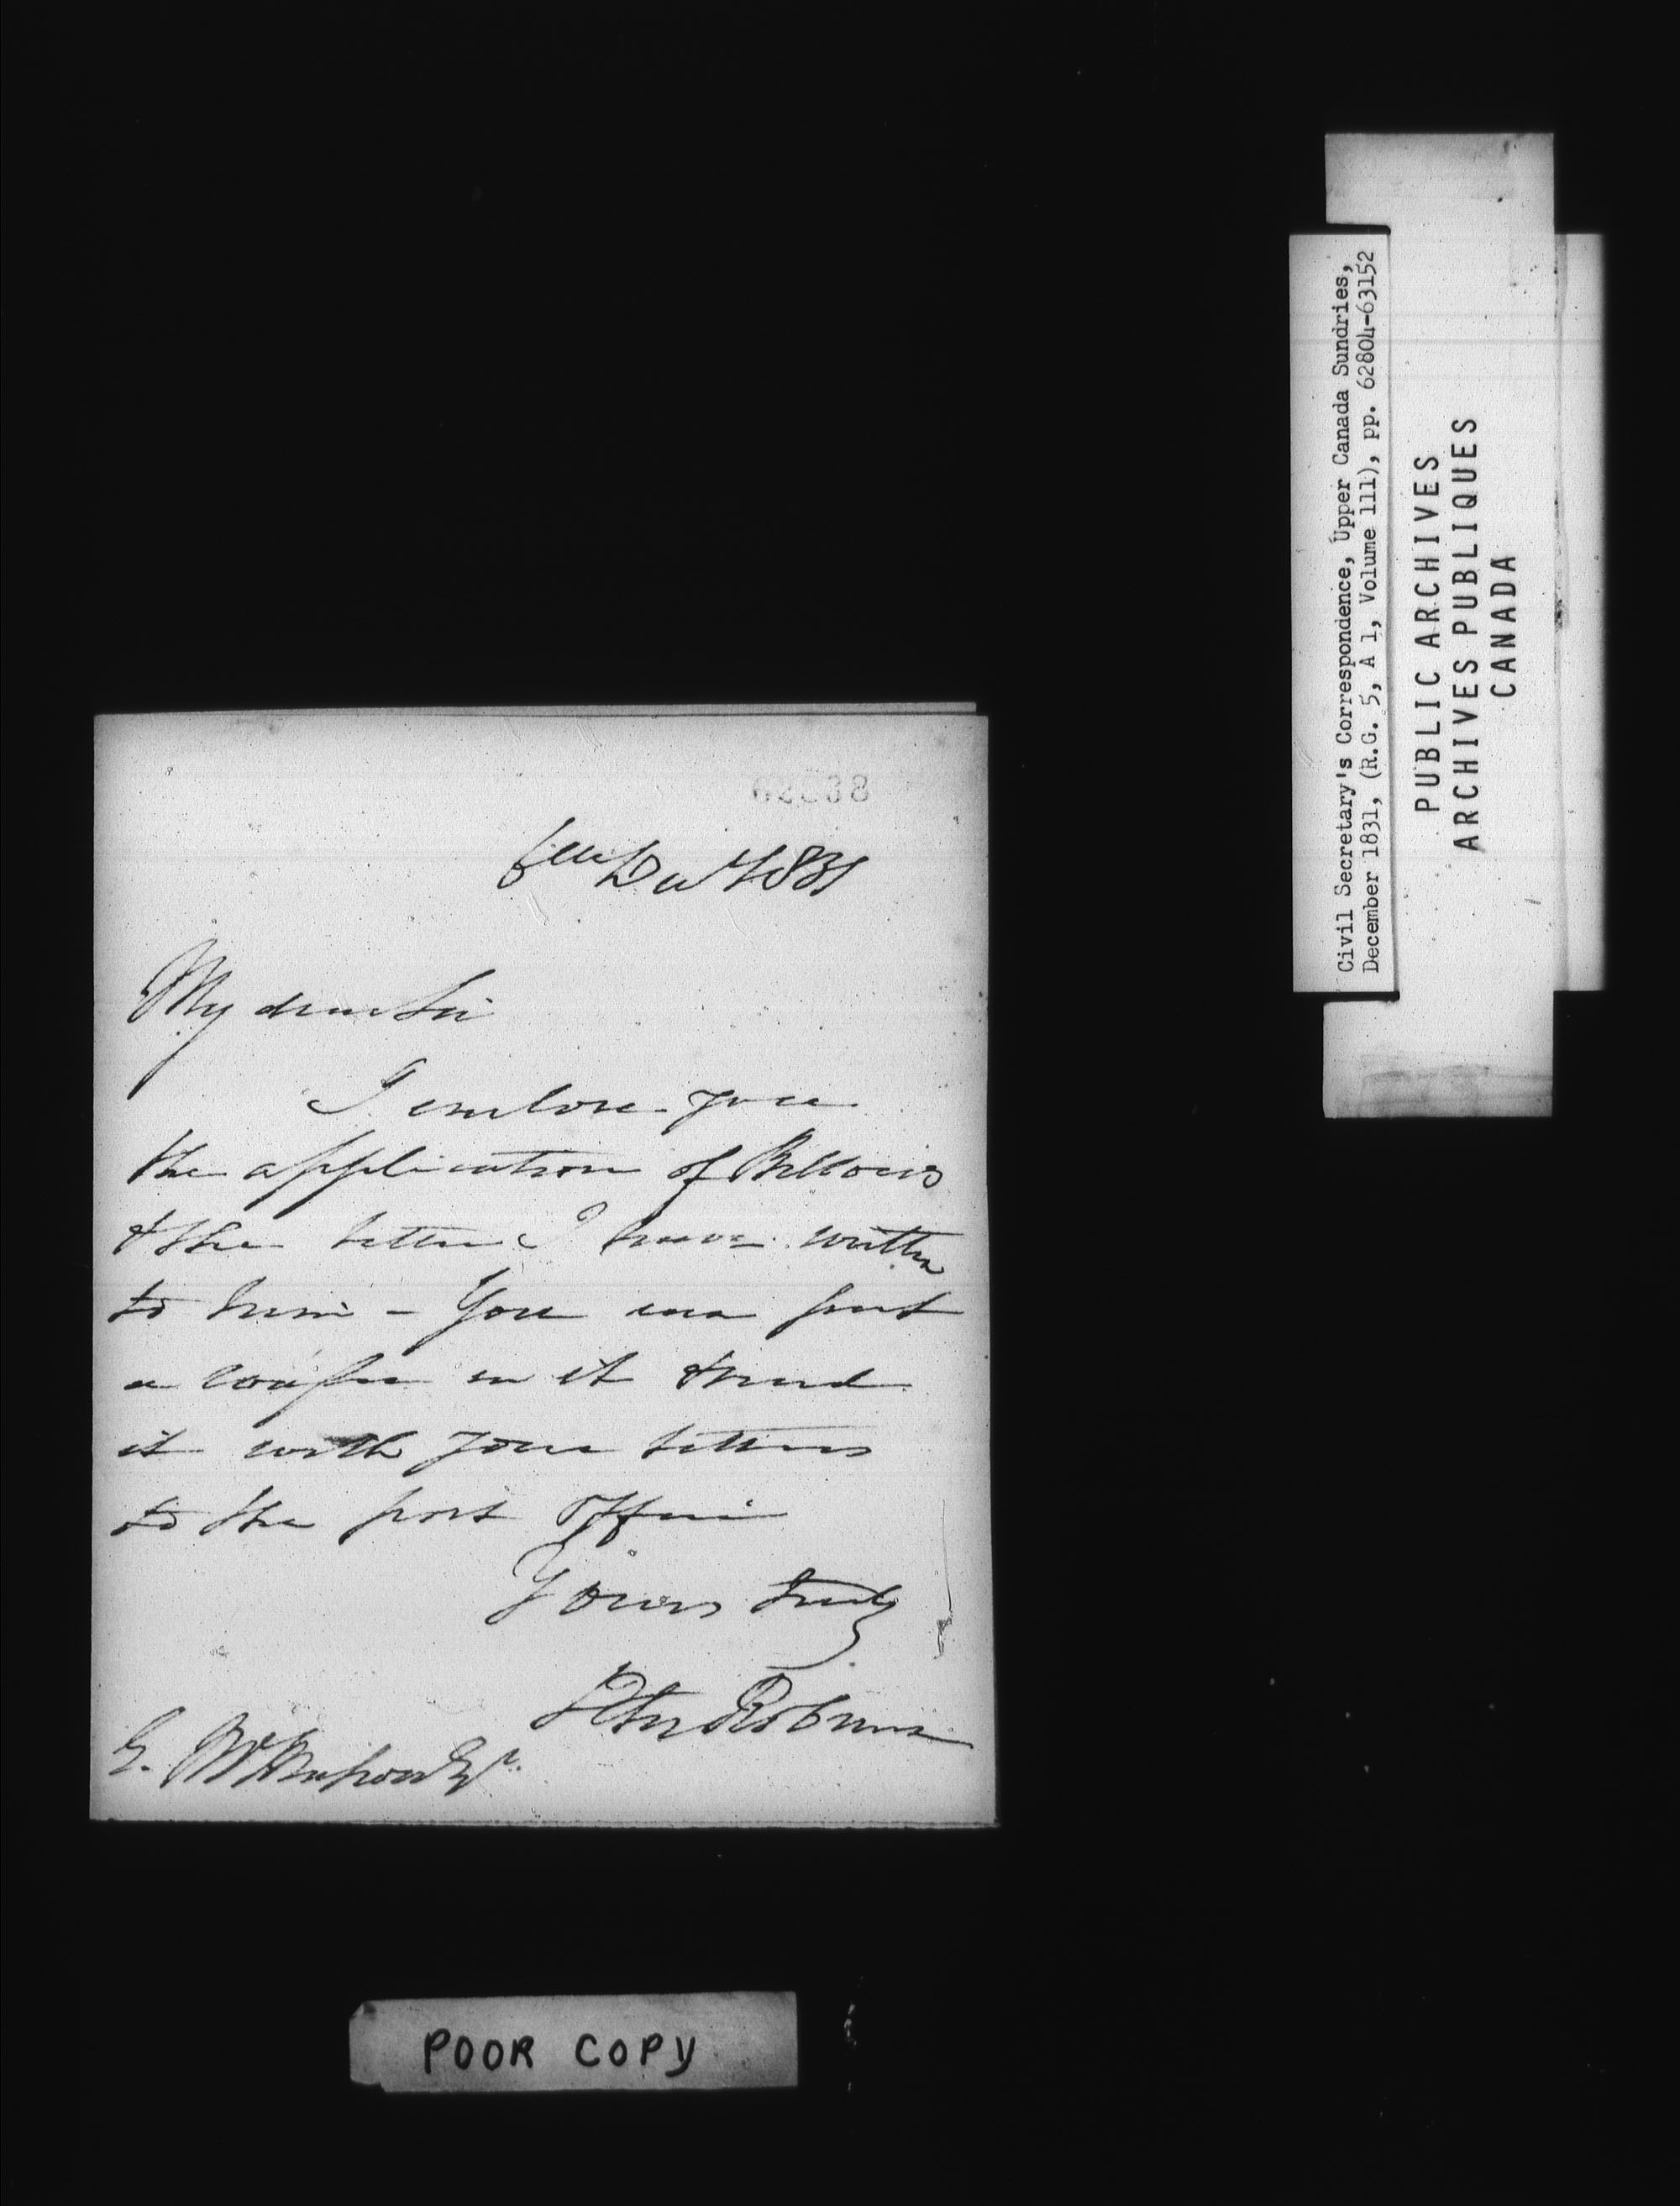 6th Decr 1831
My dear Sir
I enclose you
the application of Bellows
& the letter I have written
to him - You can put
a wafer in it & send
it with your letters
to the post Office
Yours truly
Peter Robinson
E. McMahon Esqr.
Civil Secretary's Correspondence, Upper Canada Sundries,
December 1831, (R.G. 5, A 1, Volume 111), pp. 62804-63152
PUBLIC ARCHIVES
ARCHIVES PUBLIQUES
CANADA
POOR COPY